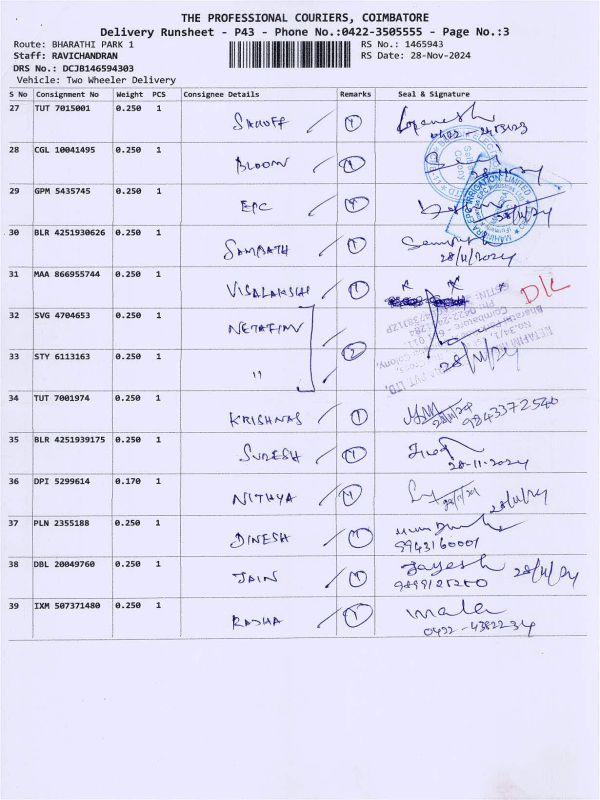 THE PROFESSIONAL COURIERS, COIMBATORE
Delivery Runsheet - P43 - Phone No.:0422-3505555 - Page No.:3
Route: BHARATHI PARK 1 RS No.: 1465943
Staff: RAVICHANDRAN RS Date: 28-Nov-2024
DRS No.: DCJB146594303
Vehicle: Two Wheeler Delivery
S No Consignment No Weight PCS Consignee Details Remarks Seal & Signature
27 TUT 7015001 0.250 1
1
28 CGL 10041495 0.250 1
BLOOM 1
29 GPM 5435745 0.250 1
EPC 1 28/11/24
MAHINDRA EPC IRRIGATION LIMITED
30 BLR 4251930626 0.250 1
SAMPATH 1
28/11/2024
31 MAA 866955744 0.250 1
VISALAKSHI 1 D/L
32 SVG 4704653 0.250 1
NETAFIM
2
33 STY 6113163 0.250 1
" 28/11/24
34 TUT 7001974 0.250 1
KRISHNAS 1 28/11/24 9843372540
35 BLR 4251939175 0.250 1
SURESH 1 28-11-2024
36 DPI 5299614 0.170 1
NITHYA 1 28/11/24
37 PLN 2355188 0.250 1
DINESH 1 9943160001
38 DBL 20049760 0.250 1
JAIN 1 Jayesh 28/11/24
39 IXM 507371480 0.250 1
RAJHA 1 mala
0422-4382234